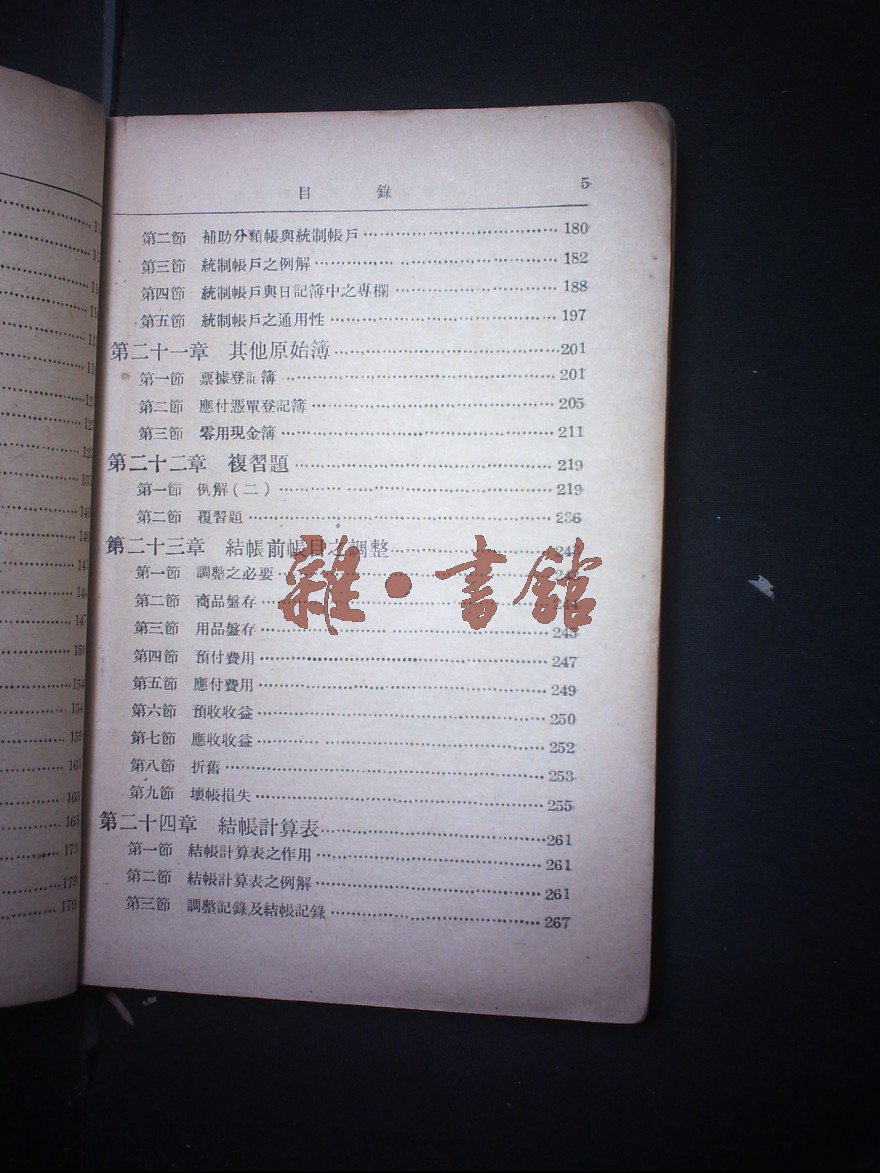 目錄 5
第二節 補助分類帳與統制帳戶 180
第三節 統制帳戶之例解 182
第四節 統制帳戶與日記簿中之專欄 188
第五節 統制帳戶之通用性 197
第二十一章 其他原始簿 201
第一節 票據登記簿 201
第二節 應付憑單登記簿 205
第三節 零用現金簿 211
第二十二章 複習題 219
第一節 例解(二) 219
第二節 覆習題 236
第二十三章 結帳前帳目之調整
第一節 調整之必要
第二節 商品盤存
第三節 用品盤存 245
第四節 預付費用 247
第五節 應付費用 249
第六節 預收收益 250
第七節 應收收益 252
第八節 折舊 253
第九節 壞帳損失 255
第二十四章 結帳計算表 261
第一節 結帳計算表之作用 261
第二節 結帳計算表之例解 261
第三節 調整記錄及結帳記錄 267
雜·書館